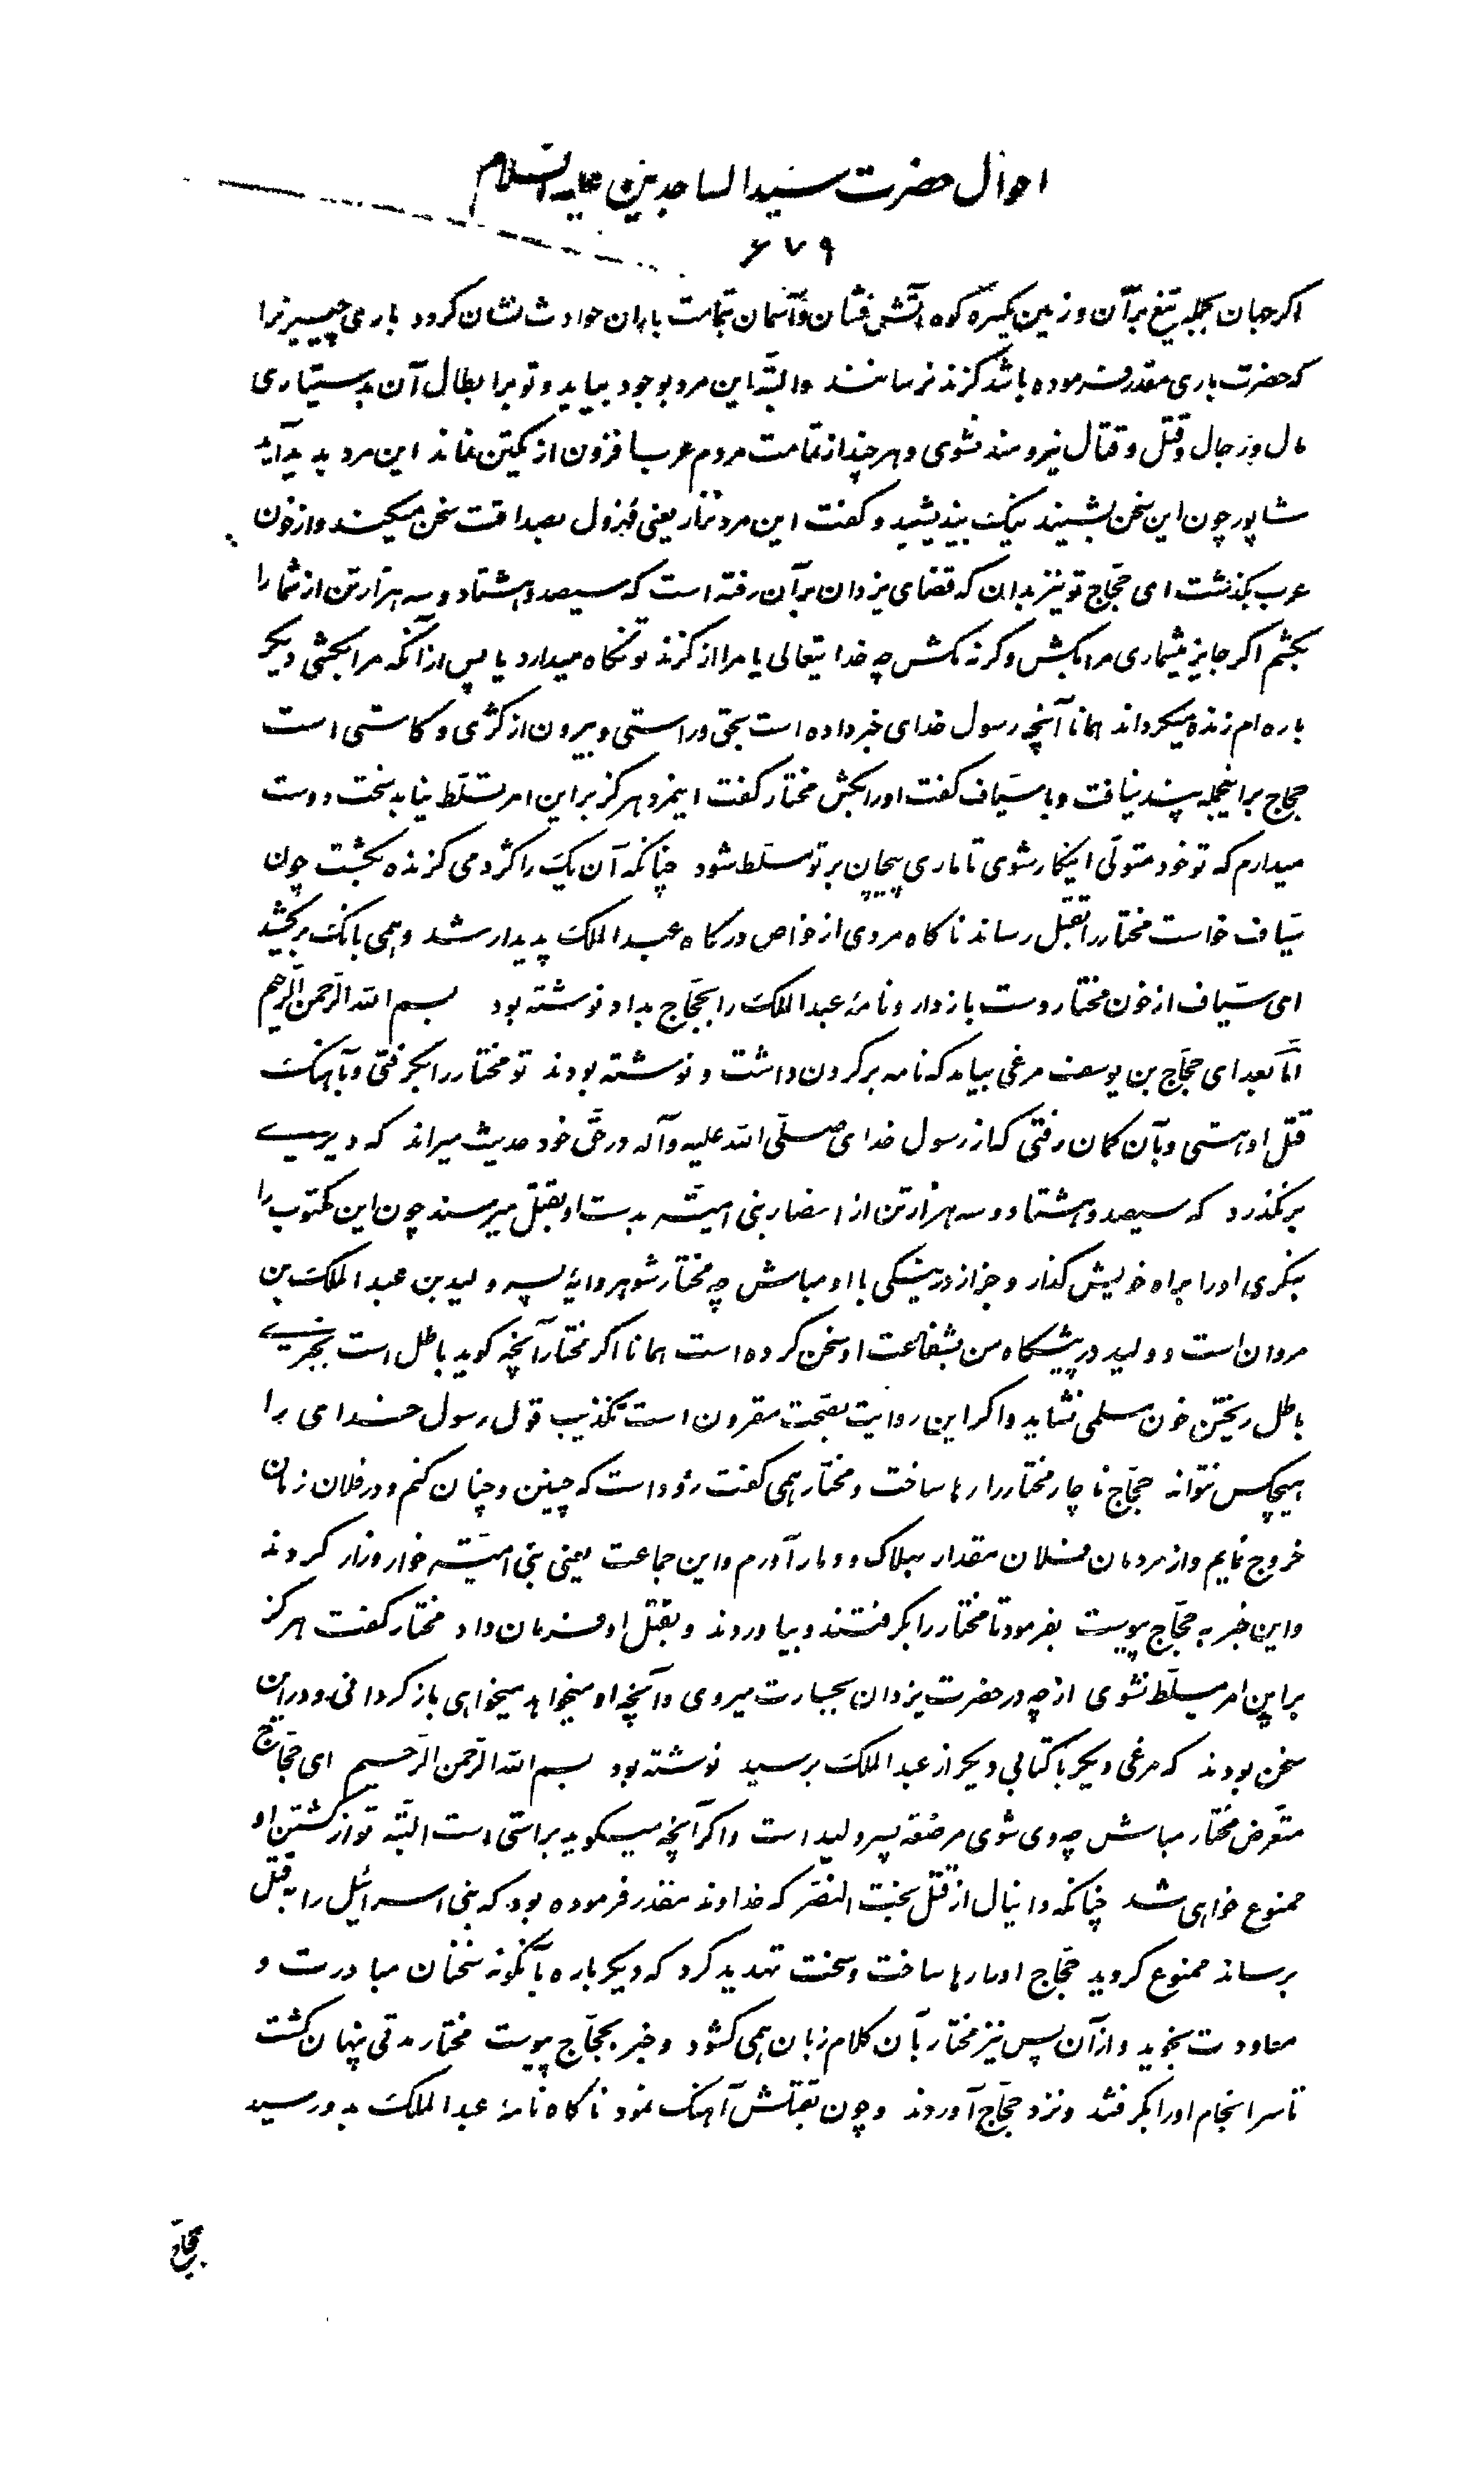 احوال حضرت سیدالساجدین علیه السلام
۶۷۹
اکر جهان بجمله تیغ برّان و زمین یکسره کوه آتش فشان و آسمان بتمامت باران حوادث نشان کردد بارمی چیزیرا
که حضرت باری مقدر فرموده باشد کزند نرسانند و البتّه این مرد بوجود بیاید و تو بر ابطال آن بدستیاری
مال و رجال و قتل و قتال نیرومند نشوی و هر چند از تمامت مردم عرب افزون از یکتن نماند این مرد پدید آید
شاپور چون این سخن بشنیند نیک بیندیشید و کفت این مرد نزار یعنی مهزول بصداقت سخن میکند و از خون
عرب بکذشت ای حجّاج تو نیز بدان که قضای یزدان بر آن رفته است که سیصد و هشتاد و سه هزار تن از شما را
بکشم اکر جایز میشماری مرا بکش و کرنه مکش چه خدایتعالی یا مرا از کزند تو نکاه میدارد یا پس از آنکه مرا بکشی دیکر
باره ام زنده میکرداند همانا آنچه رسول خدای خبر داده است بحق و راستی و بیرون از کژی و کاستی است
حجاج بر اینجمله پسند نیافت و با سیّاف کفت او را بکش مختار کفت اینمرد هرکز بر این امر تسلّط نیابد سخت دوست
میدارم که تو خود متولّی اینکار شوی تا ماری پیچان بر تو مسلّط شود چنانکه آن یک را کژدمی کزنده بکشت چون
سیّاف خواست مختار را بقتل رساند ناکاه مردی از خواص درکاه عبد الملک پدیدار شد و همی بانک برکشید
ای سیّاف از خون مختار دست بازدار و نامۀ عبدالملک را بحجّاج بداد نوشته بود بسم الله الرّحمن الرّحیم
امّا بعد ای حجّاج بن یوسف مرغی بیامد که نامه بر کردن داشت و نوشته بودند تو مختار را بکرفتی و بآهنک
قتل او هستی و بآن کمان رفتی که از رسول خدای صلّی الله علیه و آله در حقّ خود حدیث میراند که دیری
بر نکذرد که سیصد و هشتاد و سه هزار تن از انصار بنی امیّه بدست او بقتل میرسند چون این مکتوب را
بنکری او را براه خویش کذار و جز از در نیکی با او مباش چه مختار شوهر دایۀ پسر ولید بن عبد الملک بن
مروان است و ولید در پیشکاه من بشفاعت او سخن کرده است همانا اکر مختار آنچه کوید باطل است بخبری
باطل ریختن خون مسلمی نشاید و اکر این روایت بصحّت مقرون است تکذیب قول رسول خدای را
هیچکس نتواند حجّاج ناچار مختار را رها ساخت و مختار همی کفت زود است که چنین و چنان کنم و در فلان زمان
خروج نمایم و از مردمان فلان مقدار بهلاک و دمار آورم و این جماعت یعنی بنی امیّه خوار و زار کردند
و این خبر به حجّاج پیوست بفرمود تا مختار را بکرفتند و بیاوردند و بقتل او فرمان داد مختار کفت هرکز
بر این امر مسلّط نشوی از چه در حضرت یزدان بجسارت میروی و آنچه او میخواهد میخواهی بازکردانی و در این
سخن بودند که مرغی دیکر با کتابی دیکر از عبد الملک برسید نوشته بود بسم الله الرّحمن الرّحیم ای حجّاج
متعرّض مختار مباش چه وی شوی مرضعه پسر ولید است و اکر آنچه میکوید براستی است البتّه تو از کشتن او
ممنوع خواهی شد چنانکه دانیال از قتل بخت النصّر که خداوند مقدر فرموده بود که بنی اسرائیل را به قتل
برساند ممنوع کردید حجّاج او را رها ساخت و سخت تهدید کرد که دیکر باره بآنکونه سخنان مبادرت و
معاودت نجوید و از آن پس نیز مختار بآن کلام زبان همی کشود و خبر بحجّاج پیوست مختار مدتی پنهان کشت
تا سرانجام او را بکرفتند و نزد حجّاج آوردند و چون بقتلش آهنک نمود ناکاه نامۀ عبد الملک بدو رسید